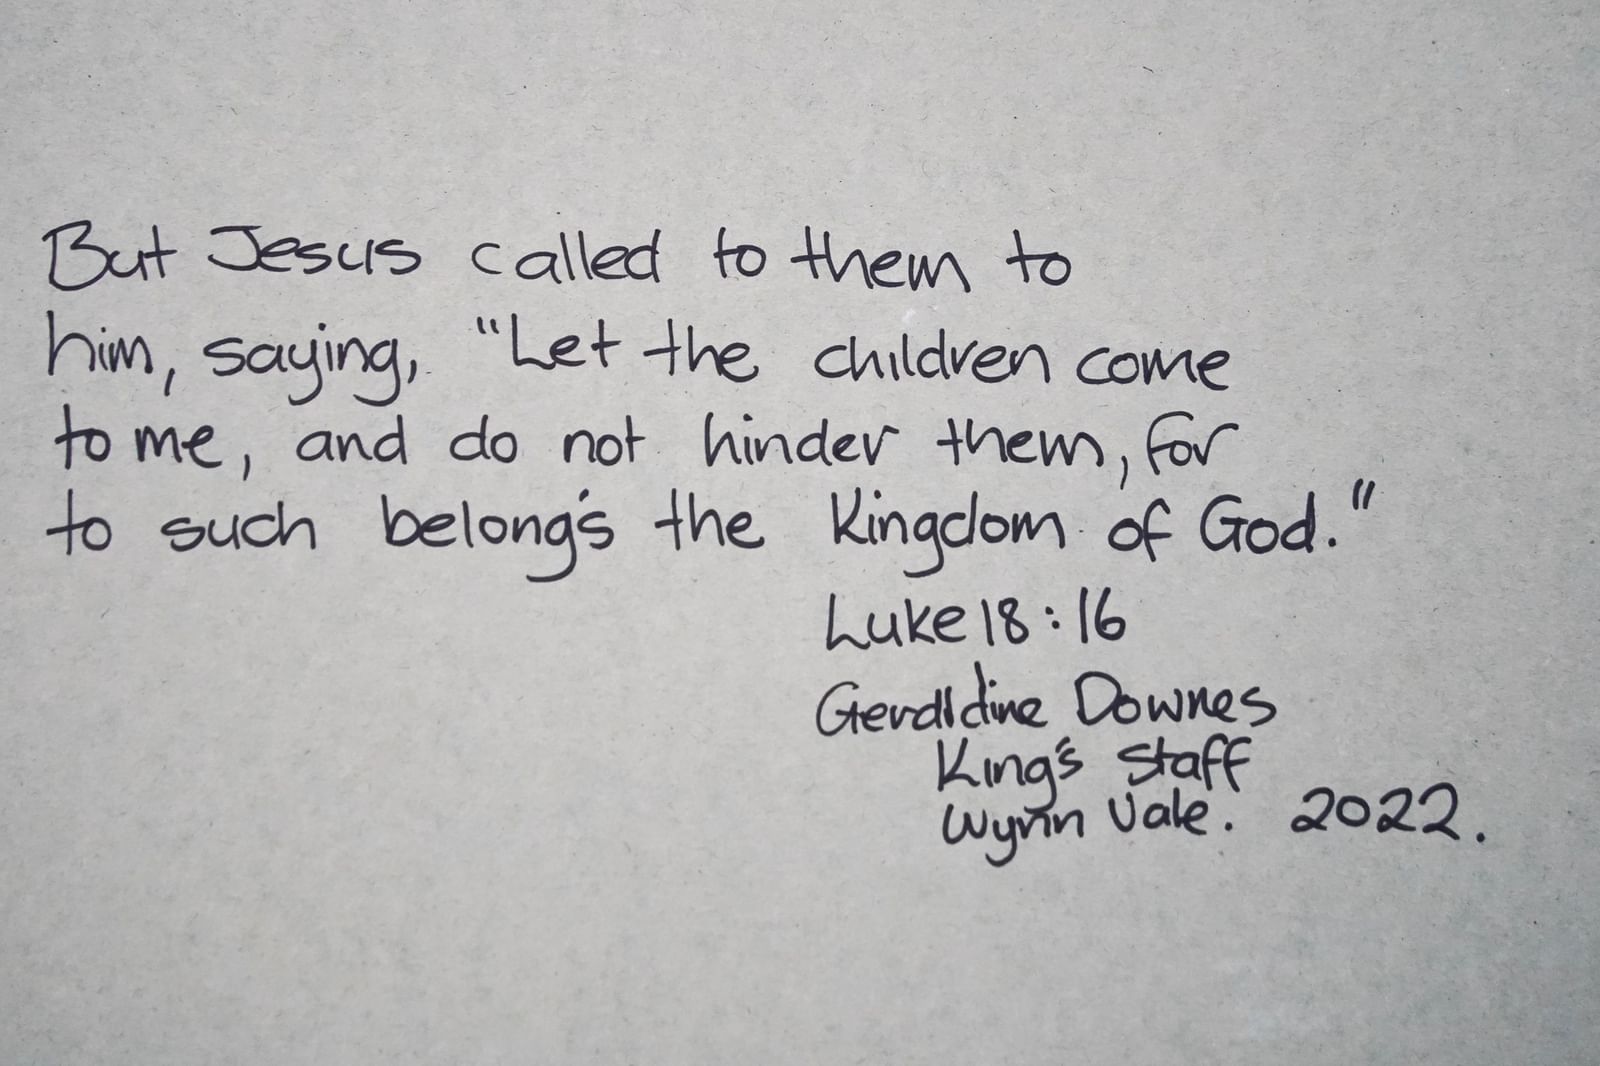 But Jesus called to them to
him, saying, "Let the children come
to me, and do not hinder them, for
to such belong's the Kingdom of God."
Luke 18:16
Geraldine Downes
King's Staff
Wynn Vale. 2022.